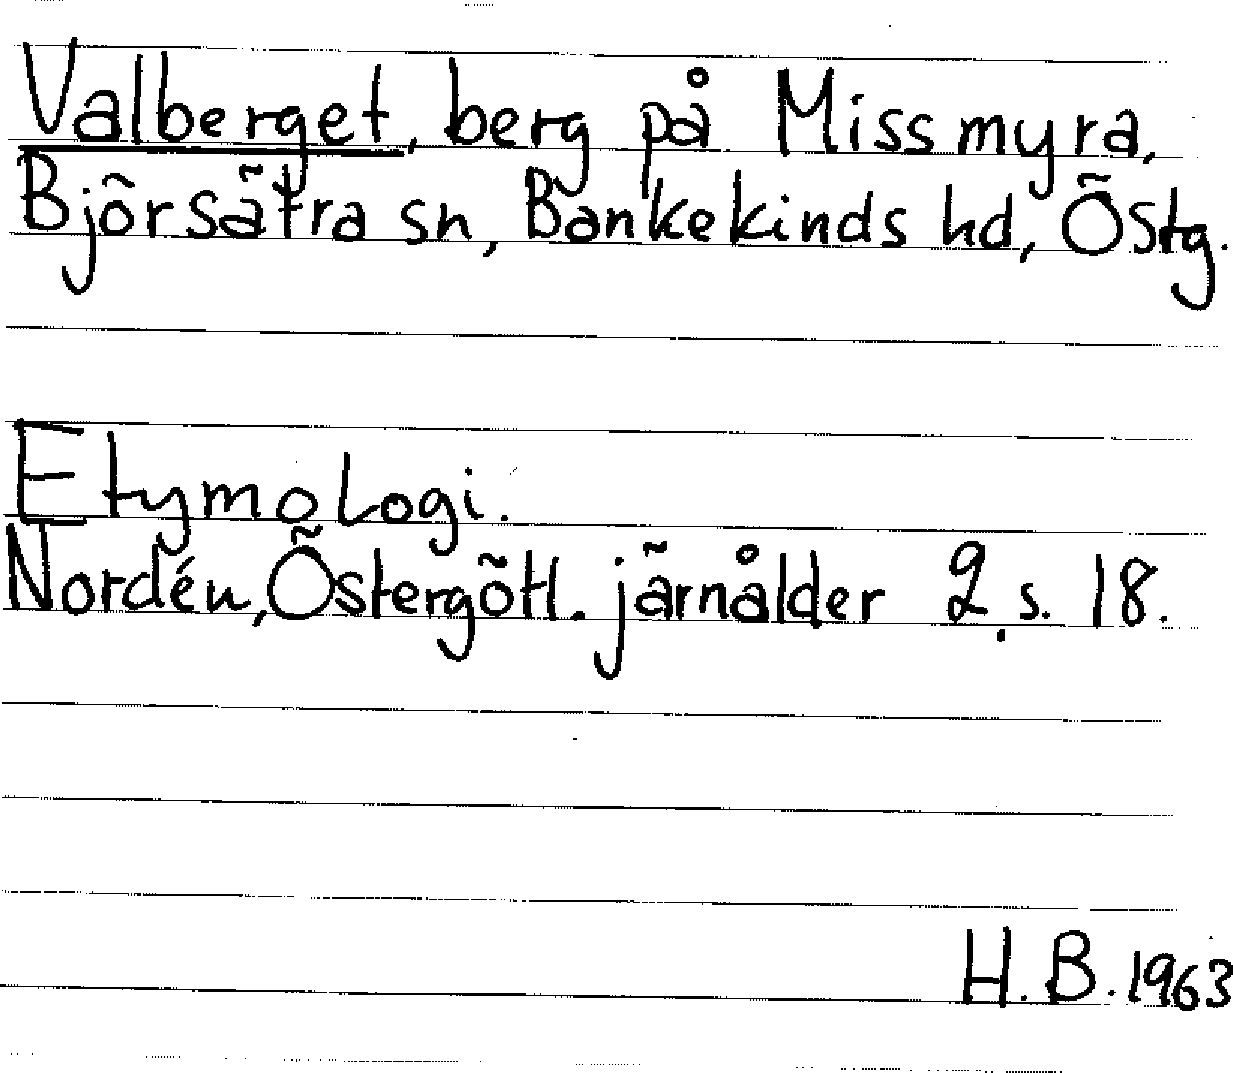 Valberget, berg på Missmyra,
Björsätra sn, Bankekinds hd, Östg.
Etymologi.
Nordén, Östergötl. järnålder 2, s. 18.
H.B. 1963